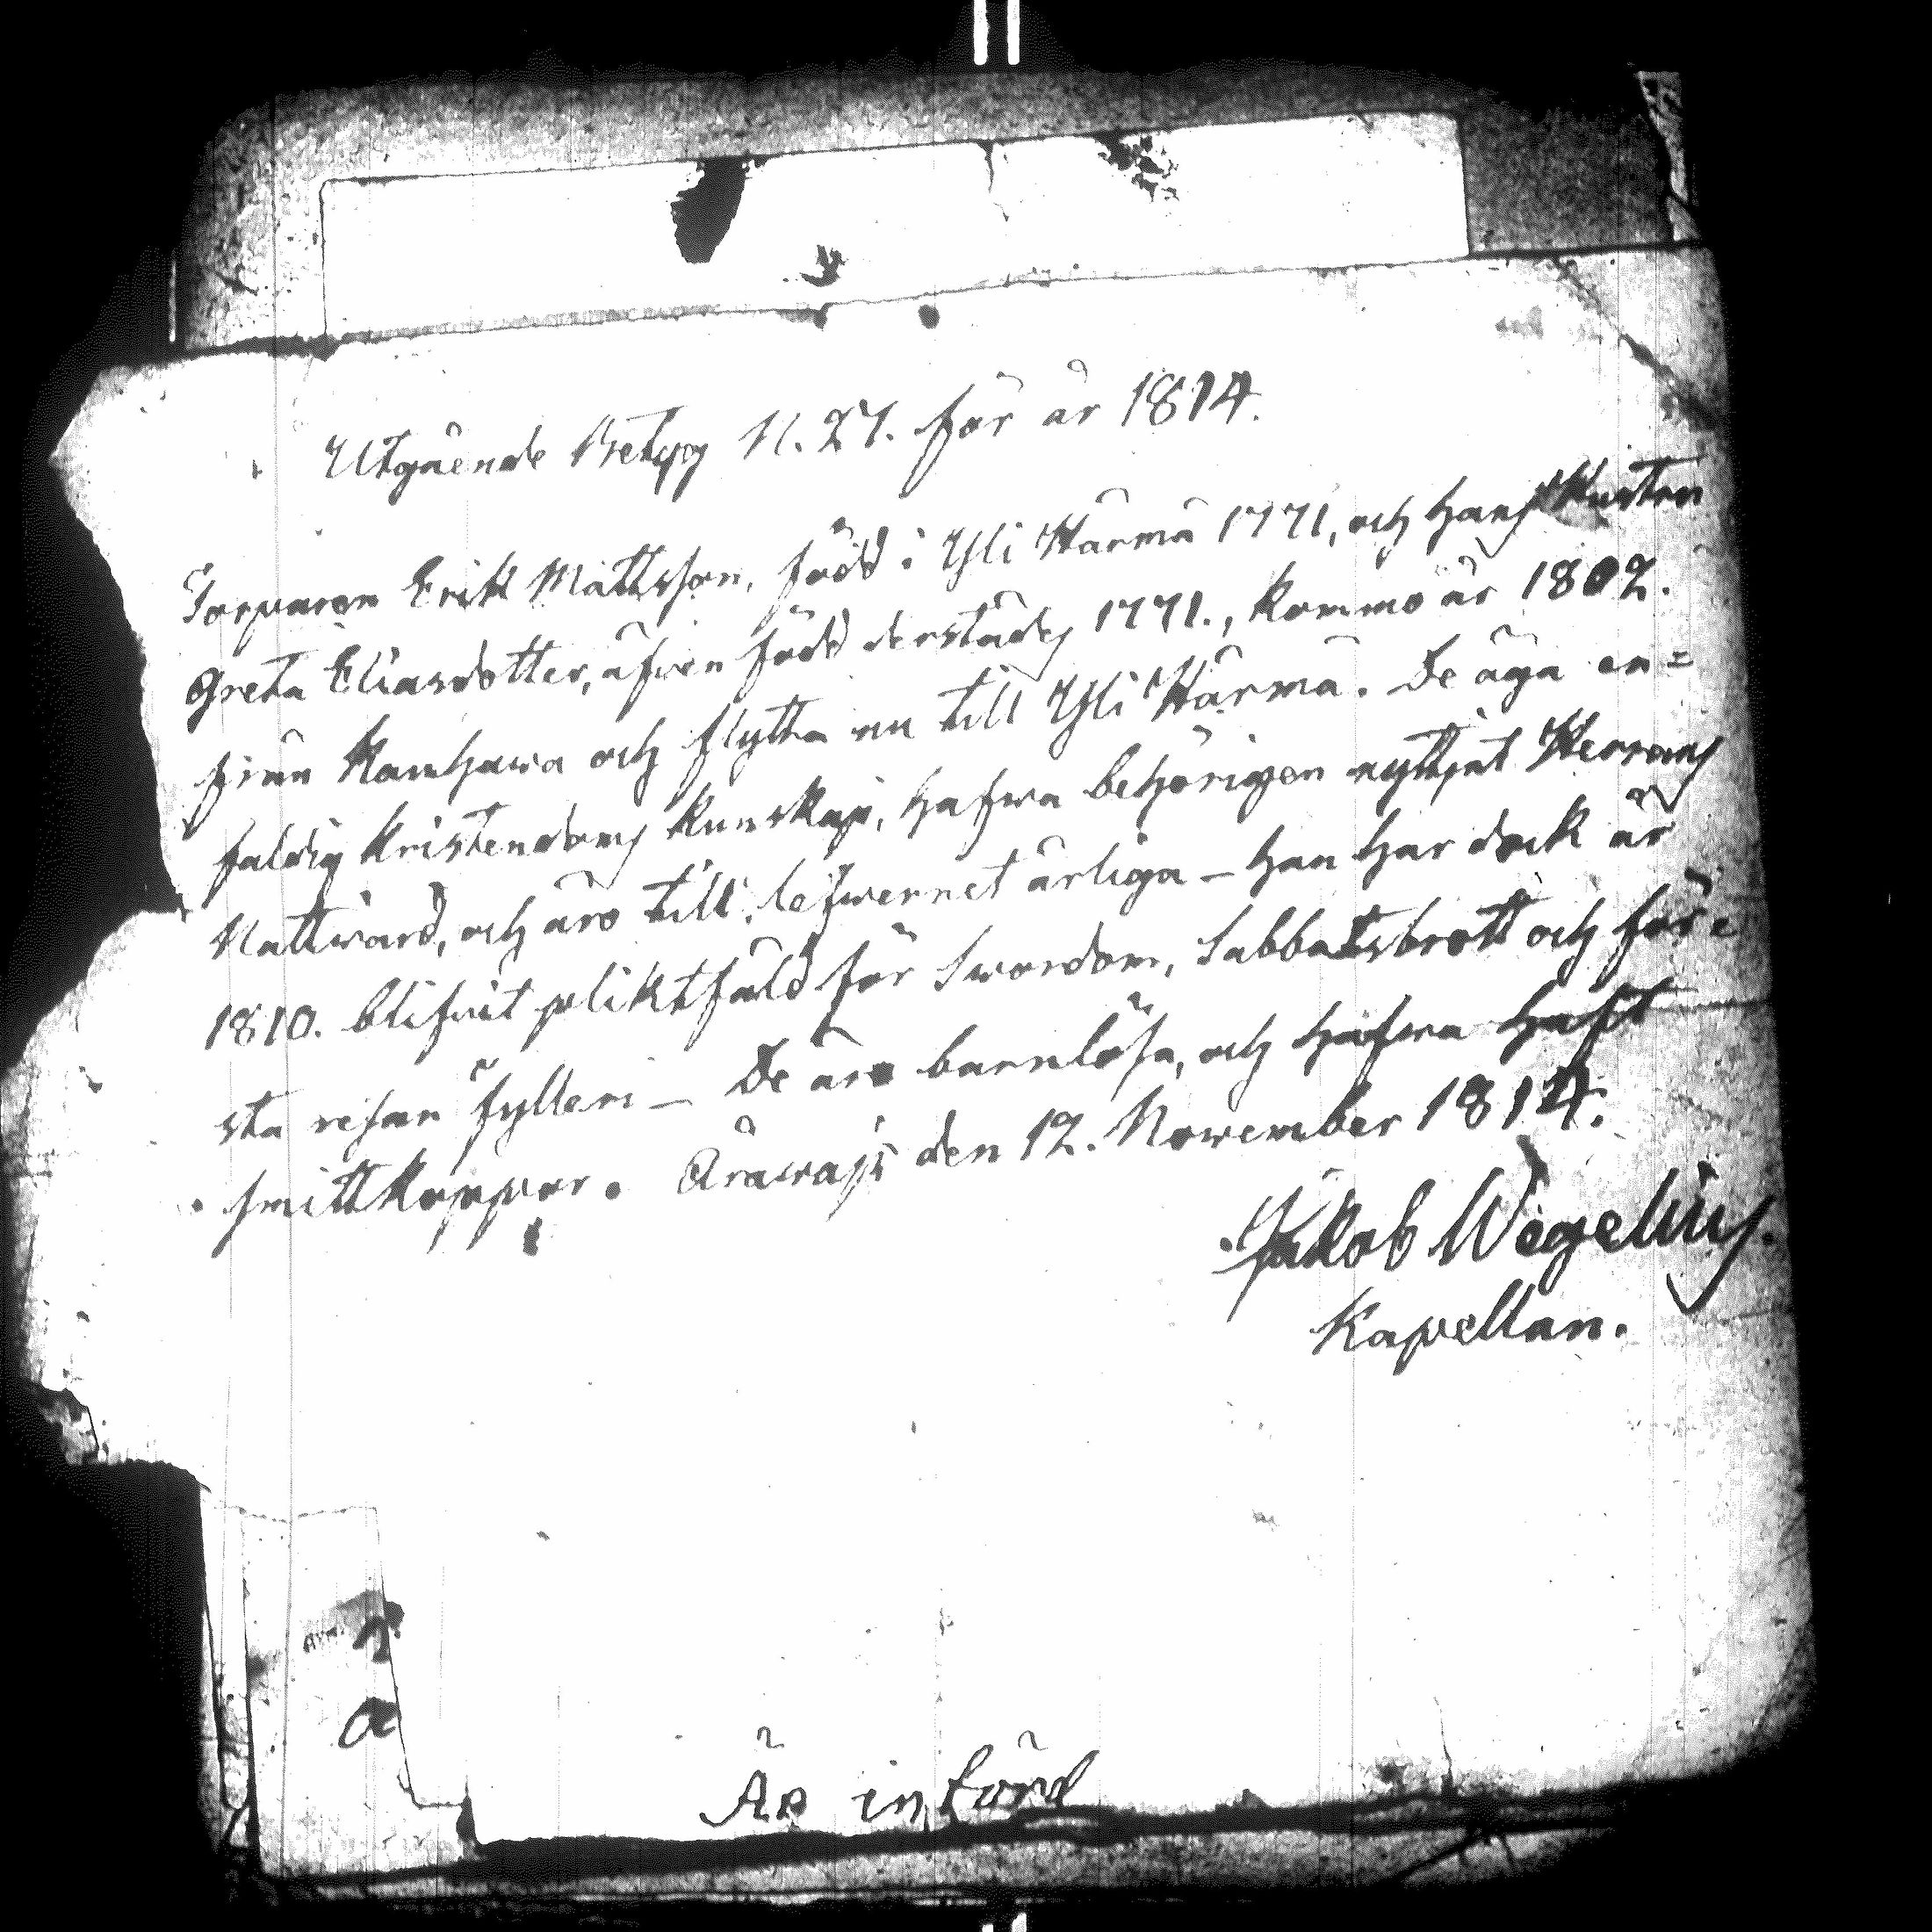 Utgående Betyg N. 27. för år 1814.
Torparen Erik Mattsson, född i Yli Härmä 1771, och hans Hustru
Greta Eliasdotter, äfven född derstädes 1771., kommo år 1802.
från Kauhawa och flytta nu till Yli Härmä. De äga en=
faldig Kristendoms kunskap, hafwa behörigen nyttjat Herrans
Nattward, och äro till lefwernet ärliga – han har dock år
1810. blifwit pliktfäld för Swordom, Sabbatsbrott och för
sta resan fylleri – De äro barnlösa, och hafwa haft
smittkoppor. Orawais den 12. November 1814.
Jakob Wegelius.
Kapellan.
a
Är införd